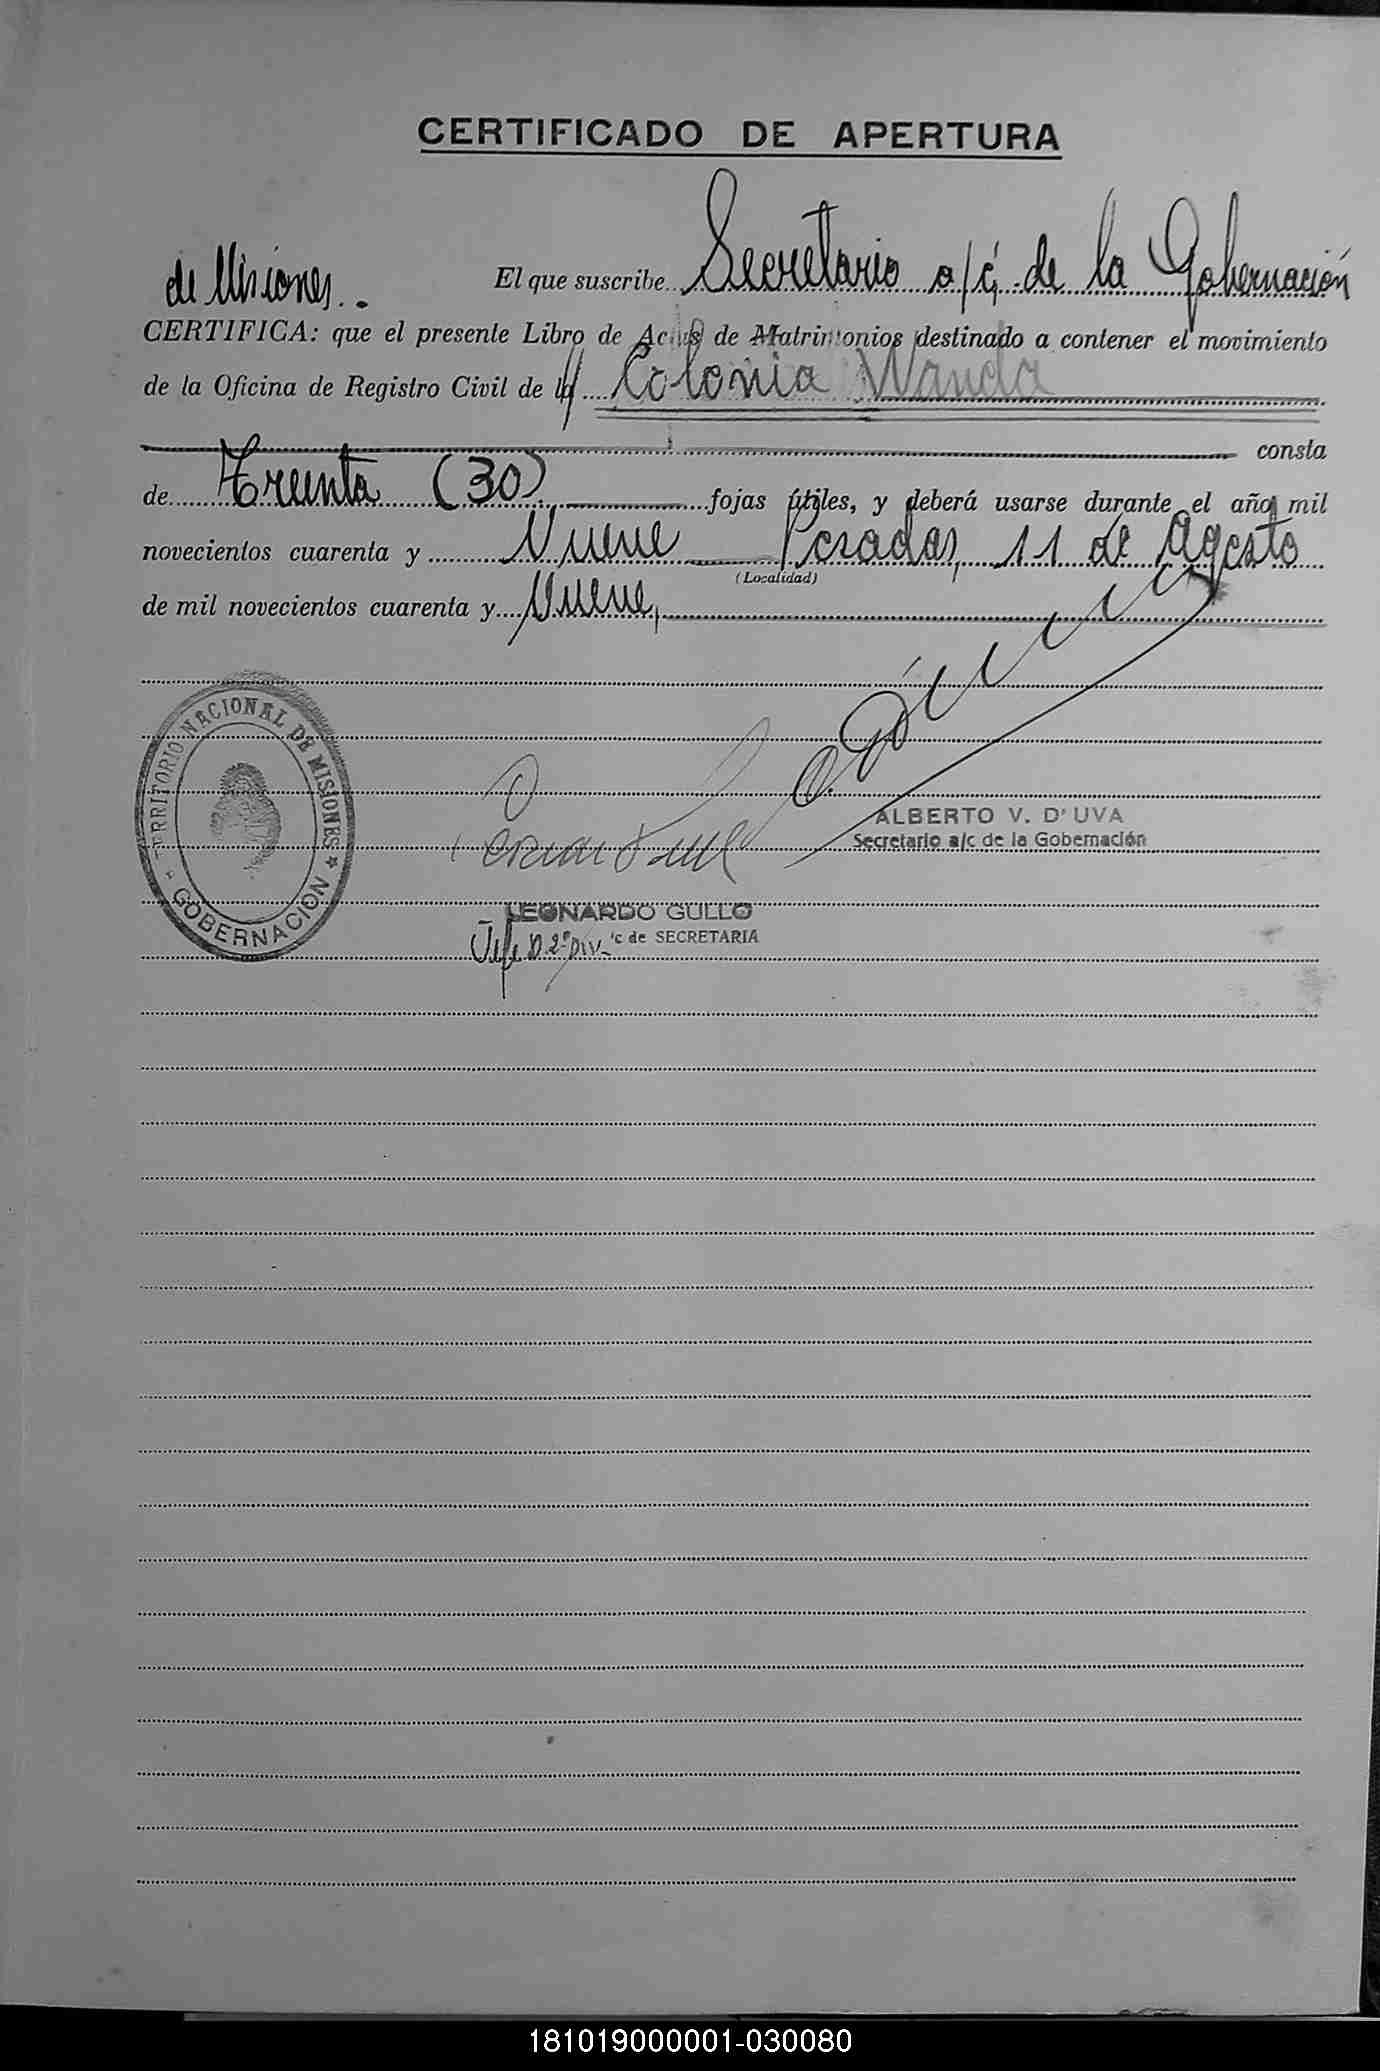 CERTIFICADO DE APERTURA
El que suscribe Secretario a/c. de la Gobernación
de Misiones.
CERTIFICA: que el presente Libro de Actas de Matrimonios destinado a contener el movimiento
de la Oficina de Registro Civil de la Colonia Wanda
consta
de Treinta (30) fojas útiles, y deberá usarse durante el año mil
novecientos cuarenta y Nueve Posadas, 11 de Agosto
(Localidad)
de mil novecientos cuarenta y Nueve,
TERRITORIO NACIONAL DE MISIONES
GOBERNACION
ALBERTO V. D'UVA
Secretario a/c de la Gobernación
LEONARDO GULLO
Jefe D. 2ª Div. c de SECRETARIA
181019000001-030080